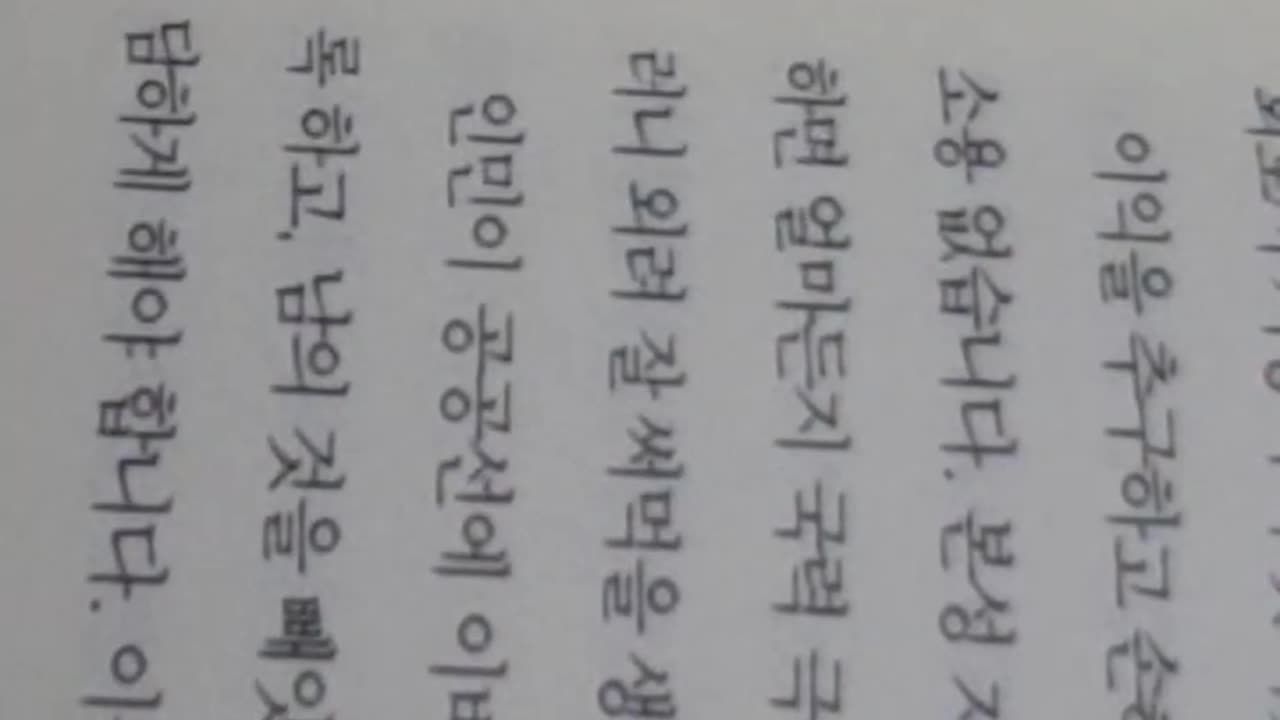 이익을 추구하고
소용 없습니다. 본성
하면 얼마든지 국력
러니 외려 잘 써먹을 생
인민이 공공선에 이바
록 하고, 남의 것을 빼앗
담하게 해야 합니다. 이